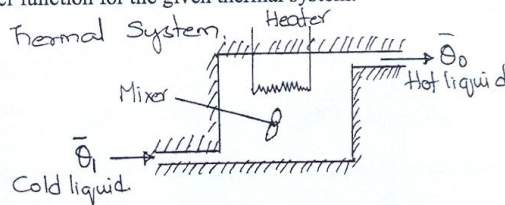 er function for the given thermal system.
Thermal System.
Heater
θ̄o
Hot liquid
Mixer
θ̄i
Cold liquid